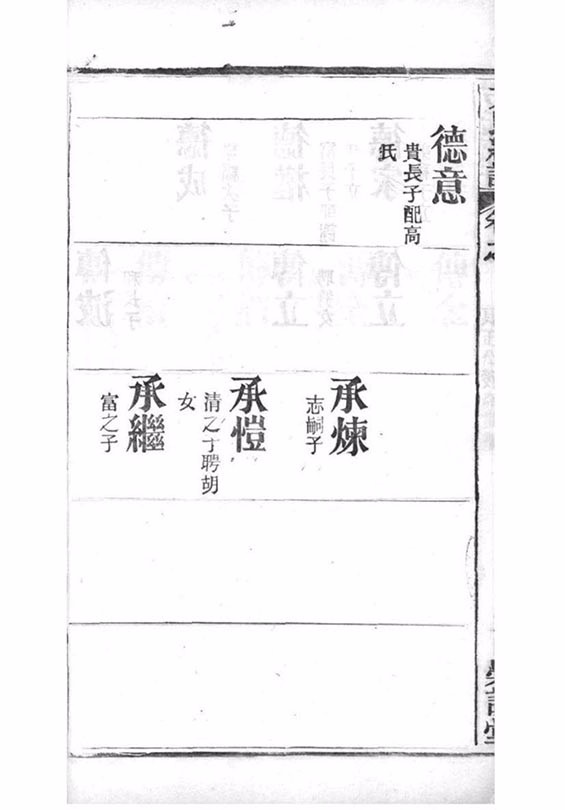 德意
貴長子配高
氏
承煉
志嗣子
承愷
清之子聘胡
女
承繼
富之子